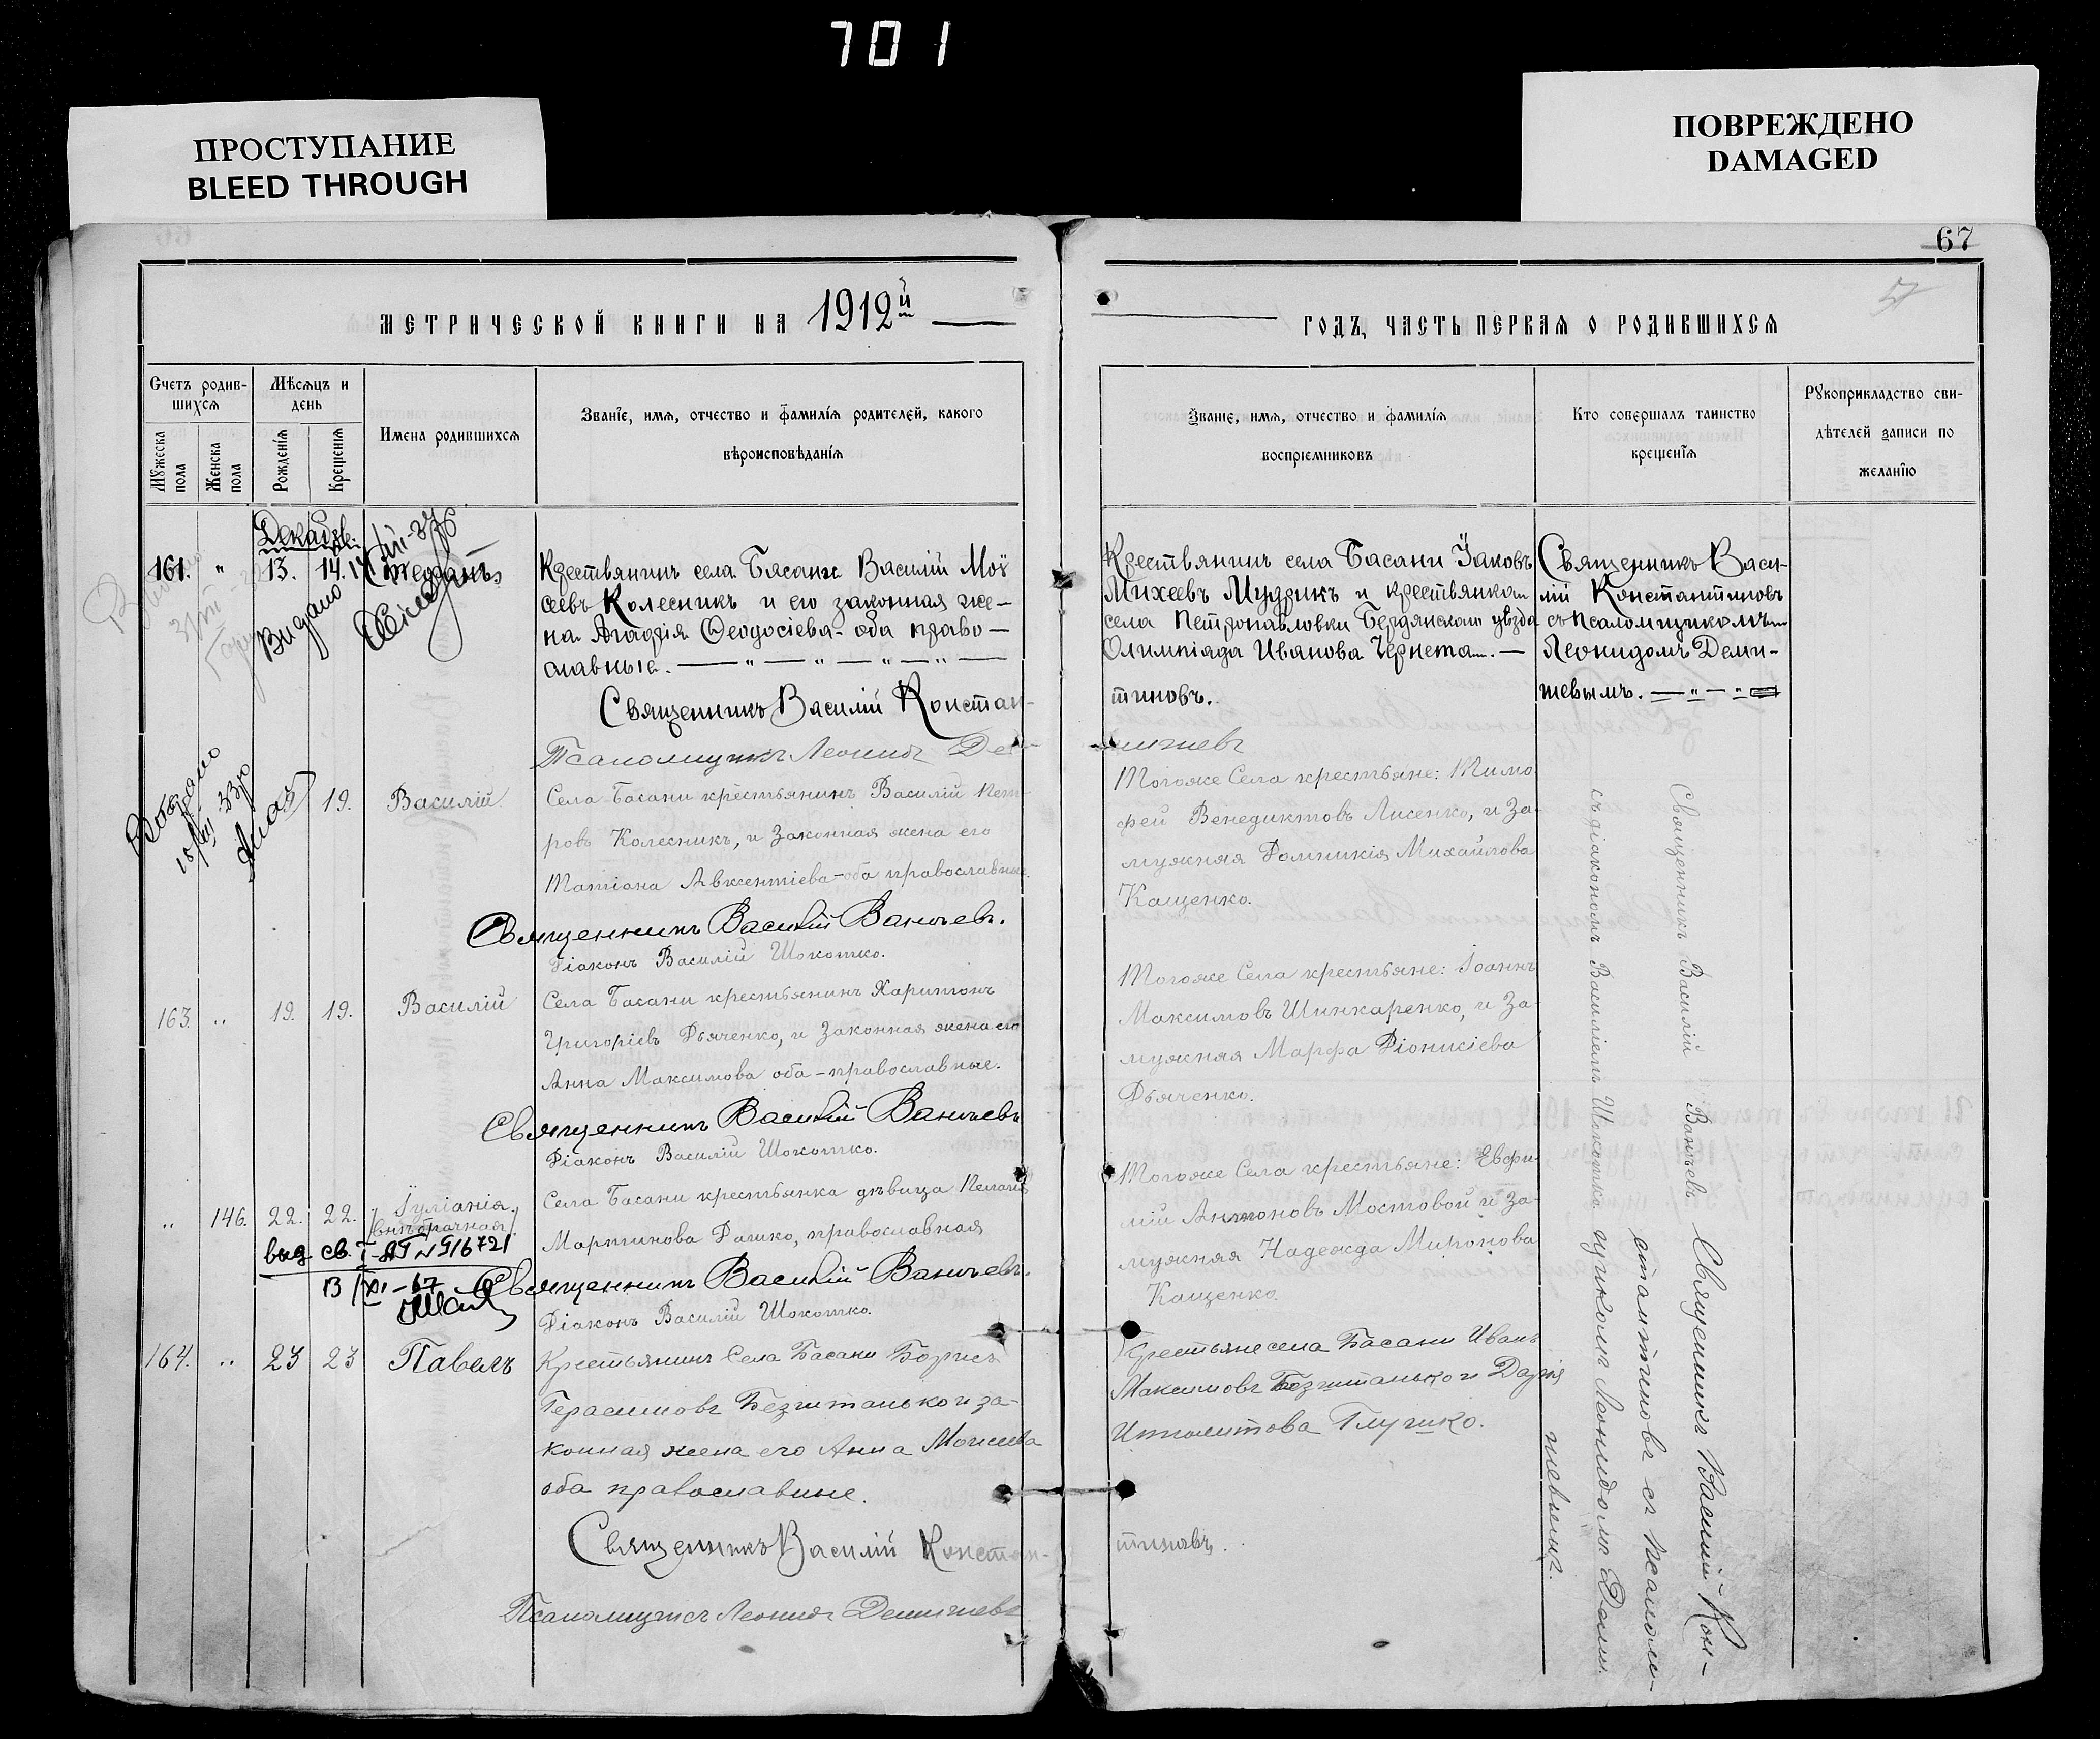 701
ПРОСТУПАНИЕ
BLEED THROUGH
ПОВРЕЖДЕНО
DAMAGED
67
МЕТРИЧЕСКОЙ КНИГИ НА 1912й
ГОДЪ, ЧАСТЬ ПЕРВАЯ О РОДИВШИХСЯ
Счетъ родив-
шихся
Мужеска пола
Женска пола
Мѣсяцъ и
день
Рожденія
Крещенія
Имена родившихся
Званіе, имя, отчество и фамилія родителей, какого
вѣроисповѣданія
Званіе, имя, отчество и фамилія
воспріемниковъ
Кто совершалъ таинство
крещенія
Рукоприкладство сви-
дѣтелей записи по
желанію
Декабрь
161. " 13. 14. Стефанъ
Видано
Крестьянинъ села Басани Василій Мої
сеевъ Колесникъ и его законная же-
на Агафія Ѳеодосіева- оба право-
славные. — " — " — " — " —
Священникъ Василій Констан-
Псаломщикъ Леонидъ Де
Крестьянинъ села Басани Іаковъ
Михеевъ Мудрикъ и крестьянка
села Петропавловки Бердянскаго уѣзда
Олимпіада Иванова Чернета. —
тиновъ.
Священникъ Васи-
лій Константиновъ
съ псаломщикомъ
Леонидомъ Деми-
шевымъ. — " — "
19. Василій
Села Басани крестьянинъ Василій Пет-
ровъ Колесникъ, и Законная жена его
Татіана Авксентіева-оба православные.
Священникъ Василій Ваничевъ.
Діаконъ Василій Шокотко.
Тогоже Села крестьяне: Тимо
фей Венедиктовъ Лисенко, и За-
мужняя Домникія Михайлова
Кащенко.
163. " 19. 19. Василій
Села Басани крестьянинъ Харитонъ
Григоріевъ Дьяченко, и Законная жена его
Анна Максимова оба-православные.
Священникъ Василій Ваничевъ
Діаконъ Василій Шокотко.
Тогоже Села крестьяне: Іоаннъ
Максимовъ Шинкаренко, и За-
мужняя Марфа Діонисіева
Дьяченко.
" 146. 22. 22. Іуліанія.
внѣбрачная
выд св. I-АП №516721
13/XI-67
Села Басани крестьянка дѣвица Пелагія
Мартинова Дашко, православная
Священникъ Василій Ваничевъ.
Діаконъ Василій Шокотко.
Тогоже Села крестьяне: Евфи-
мій Антоновъ Мостовой и За-
мужняя Надежда Миронова
Кащенко.
164. " 23 23 Павелъ
Крестьянинъ Села Басани Борисъ
Герасимовъ Безштанько и за-
конная жена его Анна Моисеева
оба православные.
Священникъ Василій Констан-
Псаломщикъ Леонидъ Демишевъ
Крестьяне села Басани Иванъ
Максимовъ Безштанько и Дарія
Ипполитова Глушко.
тиновъ.
Священникъ Василій Ваничевъ
съ діакономъ Василіемъ Шокотко
Священникъ Василій Кон-
стантиновъ съ псалом-
щикомъ Леонидомъ Деми-
шевымъ.